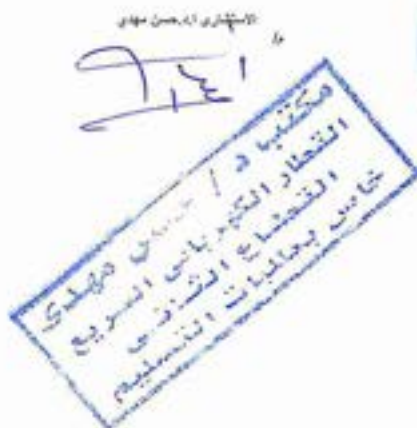 الاستشارى أ.د. حسن مهدى
مكتب د / حسن مهدى
القطار الكهربائى السريع
القطاع الثانى
خاص بطلبات التسليم